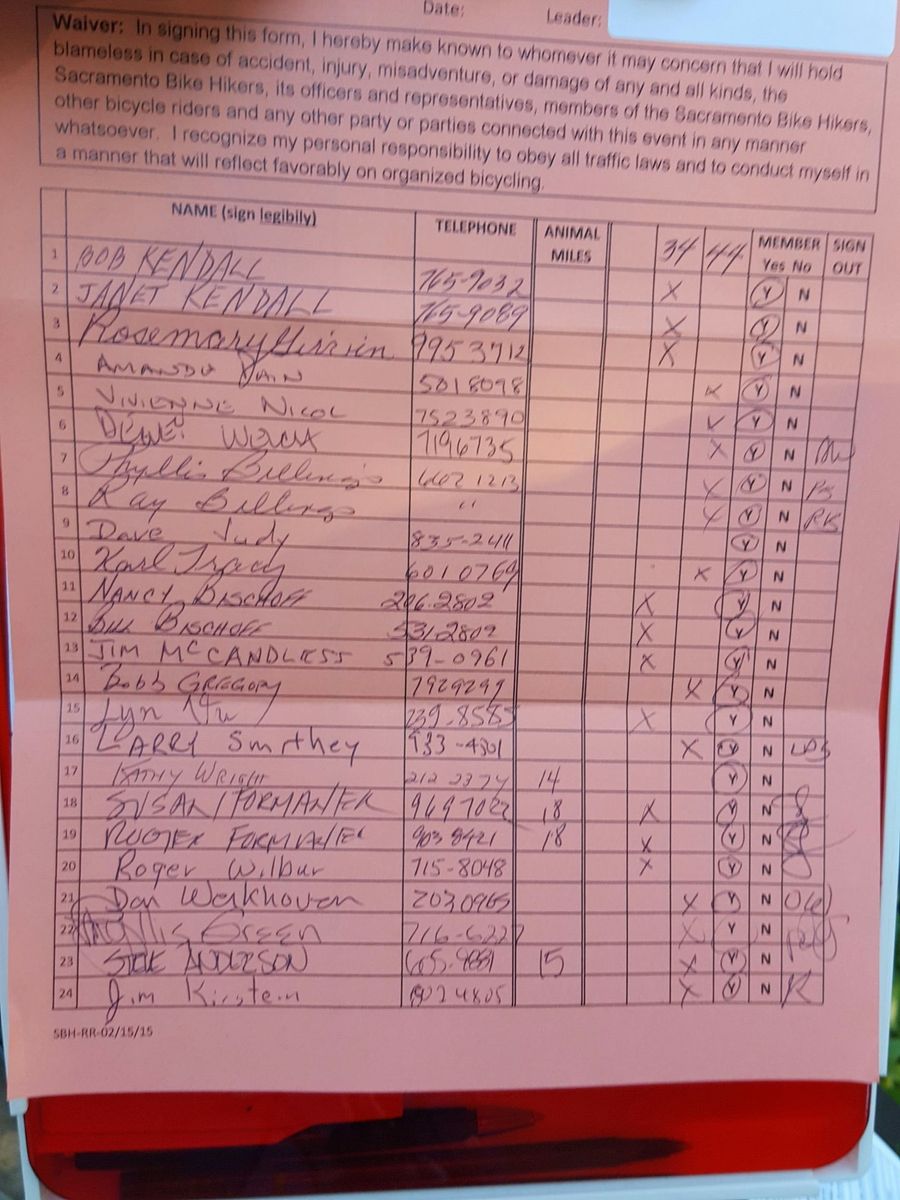 Date: Leader:
Waiver: In signing this form, I hereby make known to whomever it may concern that I will hold
blameless in case of accident, injury, misadventure, or damage of any and all kinds, the
Sacramento Bike Hikers, its officers and representatives, members of the Sacramento Bike Hikers,
other bicycle riders and any other party or parties connected with this event in any manner
whatsoever. I recognize my personal responsibility to obey all traffic laws and to conduct myself in
a manner that will reflect favorably on organized bicycling.
NAME (sign legibily) TELEPHONE ANIMAL MILES 34 44 MEMBER Yes No SIGN OUT
1 BOB KENDALL 765-9032 X Y N
2 JANET KENDALL 765-9089 X Y N
3 Rosemary 9953712 X Y N
4 AMANDO 5018098 X Y N
5 VIVIENNE NICOL 7523890 Y N
6 7196735 X Y N
7 Phyllis Billings 6621213 X Y N PB
8 Ray Billings " X Y N RB
9 Dave Judy 835-2411 Y N
10 Karl Tracy 6010769 X Y N
11 NANCY BISCHOFF 206.2802 X Y N
12 BILL BISCHOFF 531.2809 X Y N
13 JIM McCANDLESS 539-0961 X Y N
14 Bobb GREGORY 7929299 X Y N
15 Lyn 239.8585 X Y N
16 LARRY Smithey 933-4301 X Y N
17 KATHY WRIGHT 212 2374 14 Y N
18 SUSAN FORMANEK 9697022 18 X Y N
19 FORMANEK 903 8421 18 X Y N
20 Roger Wilbur 715-8048 X Y N
21 Dan Werkhoven 2030965 X Y N
22 Phyllis Green 716-6227 X Y N
23 STEVE ANDERSON 605.9881 15 X Y N
24 Jim Kirstein 8024805 X Y N K
SBH-RR-02/15/15